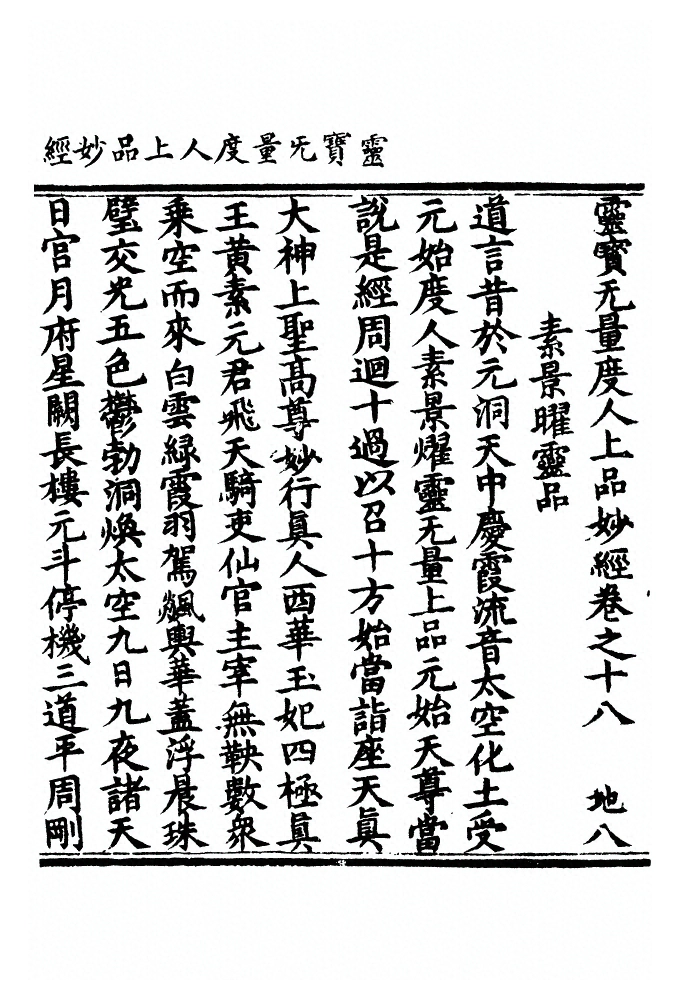 靈寶无量度人上品妙經
靈寶无量度人上品妙經卷之十八 地八
素景曜靈品
道言昔於元洞天中慶霞流音太空化土受
元始度人素景燿靈无量上品元始天尊當
說是經周迴十過以召十方始當詣座天眞
大神上聖髙尊妙行眞人西華玉妃四極眞
王黃素元君飛天騎吏仙官主宰無鞅數衆
乗空而來白雲緑霞羽駕飈輿華蓋浮晨珠
璧交光五色鬱勃洞煥太空九日九夜諸天
日宮月府星闕長樓元斗停機三道平周剛